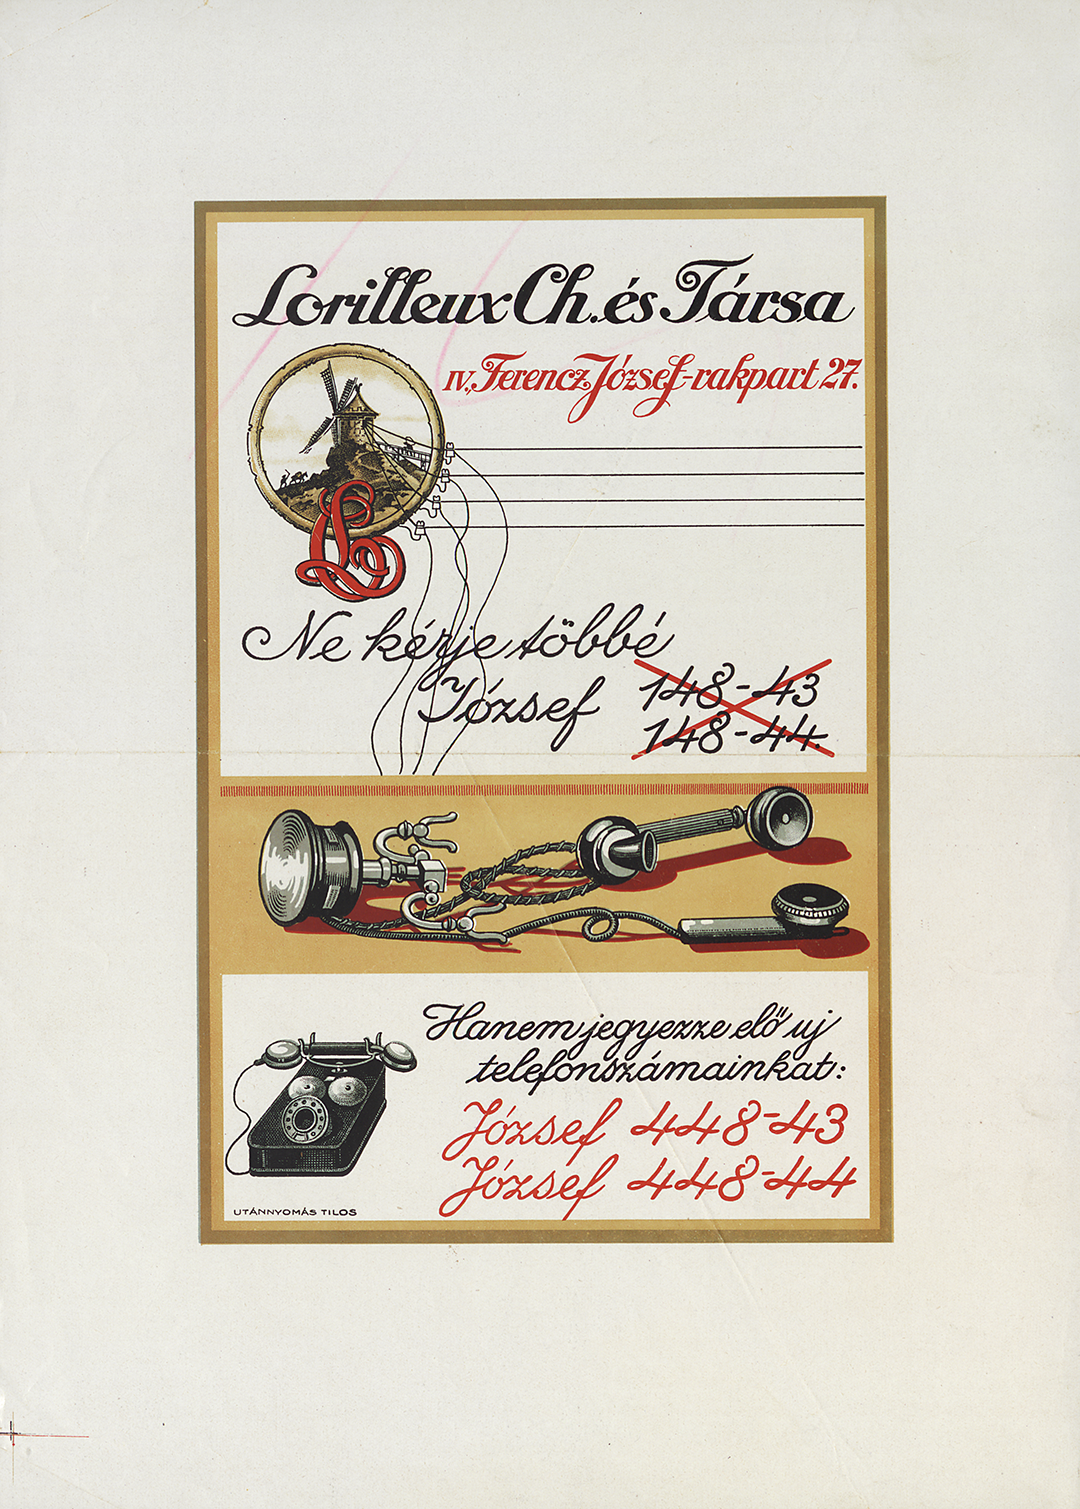 Lorilleux Ch. és Társa
IV., Ferencz József-rakpart 27.
L
Ne kérje többé
József 148-43
148-44.
Hanem jegyezze elő uj
telefonszámainkat:
József 448-43
József 448-44
UTÁNNYOMÁS TILOS